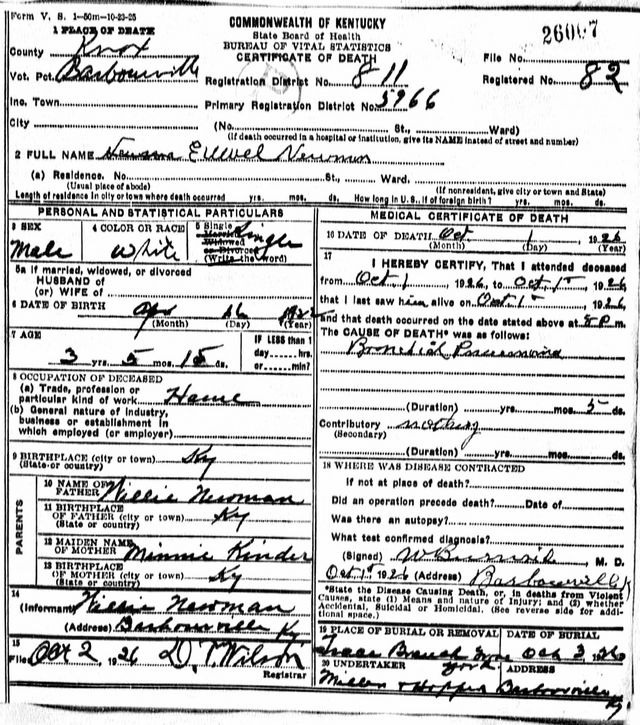 Form V. S. 1—50m—10-23-25
COMMONWEALTH OF KENTUCKY
State Board of Health
BUREAU OF VITAL STATISTICS
CERTIFICATE OF DEATH
26007
File No.
Registered No. 82
1 PLACE OF DEATH
County Knox
Vot. Pct. Barbourville
Registration District No. 811
Inc. Town
Primary Registration District No. 5966
City (No. St., Ward)
(If death occurred in a hospital or institution, give its NAME instead of street and number)
2 FULL NAME Newman
(a) Residence. No. St., Ward.
(Usual place of abode) (If nonresident, give city or town and State)
Length of residence in city or town where death occurred yrs. mos. ds. How long in U. S., if of foreign birth? yrs. mos. ds.
PERSONAL AND STATISTICAL PARTICULARS
3 SEX Male
4 COLOR OR RACE White
5 Single Single
Married
Widowed
or Divorced
(Write the word)
5a If married, widowed, or divorced
HUSBAND of
(or) WIFE of
6 DATE OF BIRTH Apr 16
(Month) (Day) (Year)
7 AGE
3 yrs. 5 mos. 15 ds.
IF LESS than 1
day hrs.
or min?
8 OCCUPATION OF DECEASED
(a) Trade, profession or
particular kind of work Home
(b) General nature of industry,
business or establishment in
which employed (or employer)
9 BIRTHPLACE (city or town) Ky
(State or country)
PARENTS
10 NAME OF
FATHER Willie Newman
11 BIRTHPLACE
OF FATHER (city or town) Ky
(State or country)
12 MAIDEN NAME
OF MOTHER Minnie Kinder
13 BIRTHPLACE
OF MOTHER (city or town) Ky
(State or country)
14
(Informant) Willie Newman
(Address) Barbourville Ky
15
Filed Oct 2, 1926 D. T. Wilson
Registrar
MEDICAL CERTIFICATE OF DEATH
16 DATE OF DEATH Oct 1, 1926
(Month) (Day) (Year)
17
I HEREBY CERTIFY, That I attended deceased
from Oct 1, 1926, to Oct 1st 1926,
that I last saw him alive on Oct 1st, 1926,
and that death occurred on the date stated above at 8 P m.
The CAUSE OF DEATH* was as follows:
Bronchial Pneumonia
(Duration) yrs. mos. 5 ds.
Contributory nothing
(Secondary)
(Duration) yrs. mos. ds.
18 WHERE WAS DISEASE CONTRACTED
If not at place of death?
Did an operation precede death? Date of
Was there an autopsy?
What test confirmed diagnosis?
(Signed) M. D.
Oct 1st 1926 (Address) Barbourville Ky
*State the Disease Causing Death, or, in deaths from Violent
Causes, state (1) Means and nature of Injury; and (2) whether
Accidental, Suicidal or Homicidal. (See reverse side for addi-
tional space.)
19 PLACE OF BURIAL OR REMOVAL DATE OF BURIAL
Branch Oct 3 1926
20 UNDERTAKER ADDRESS
Miller & Hopper Barbourville Ky